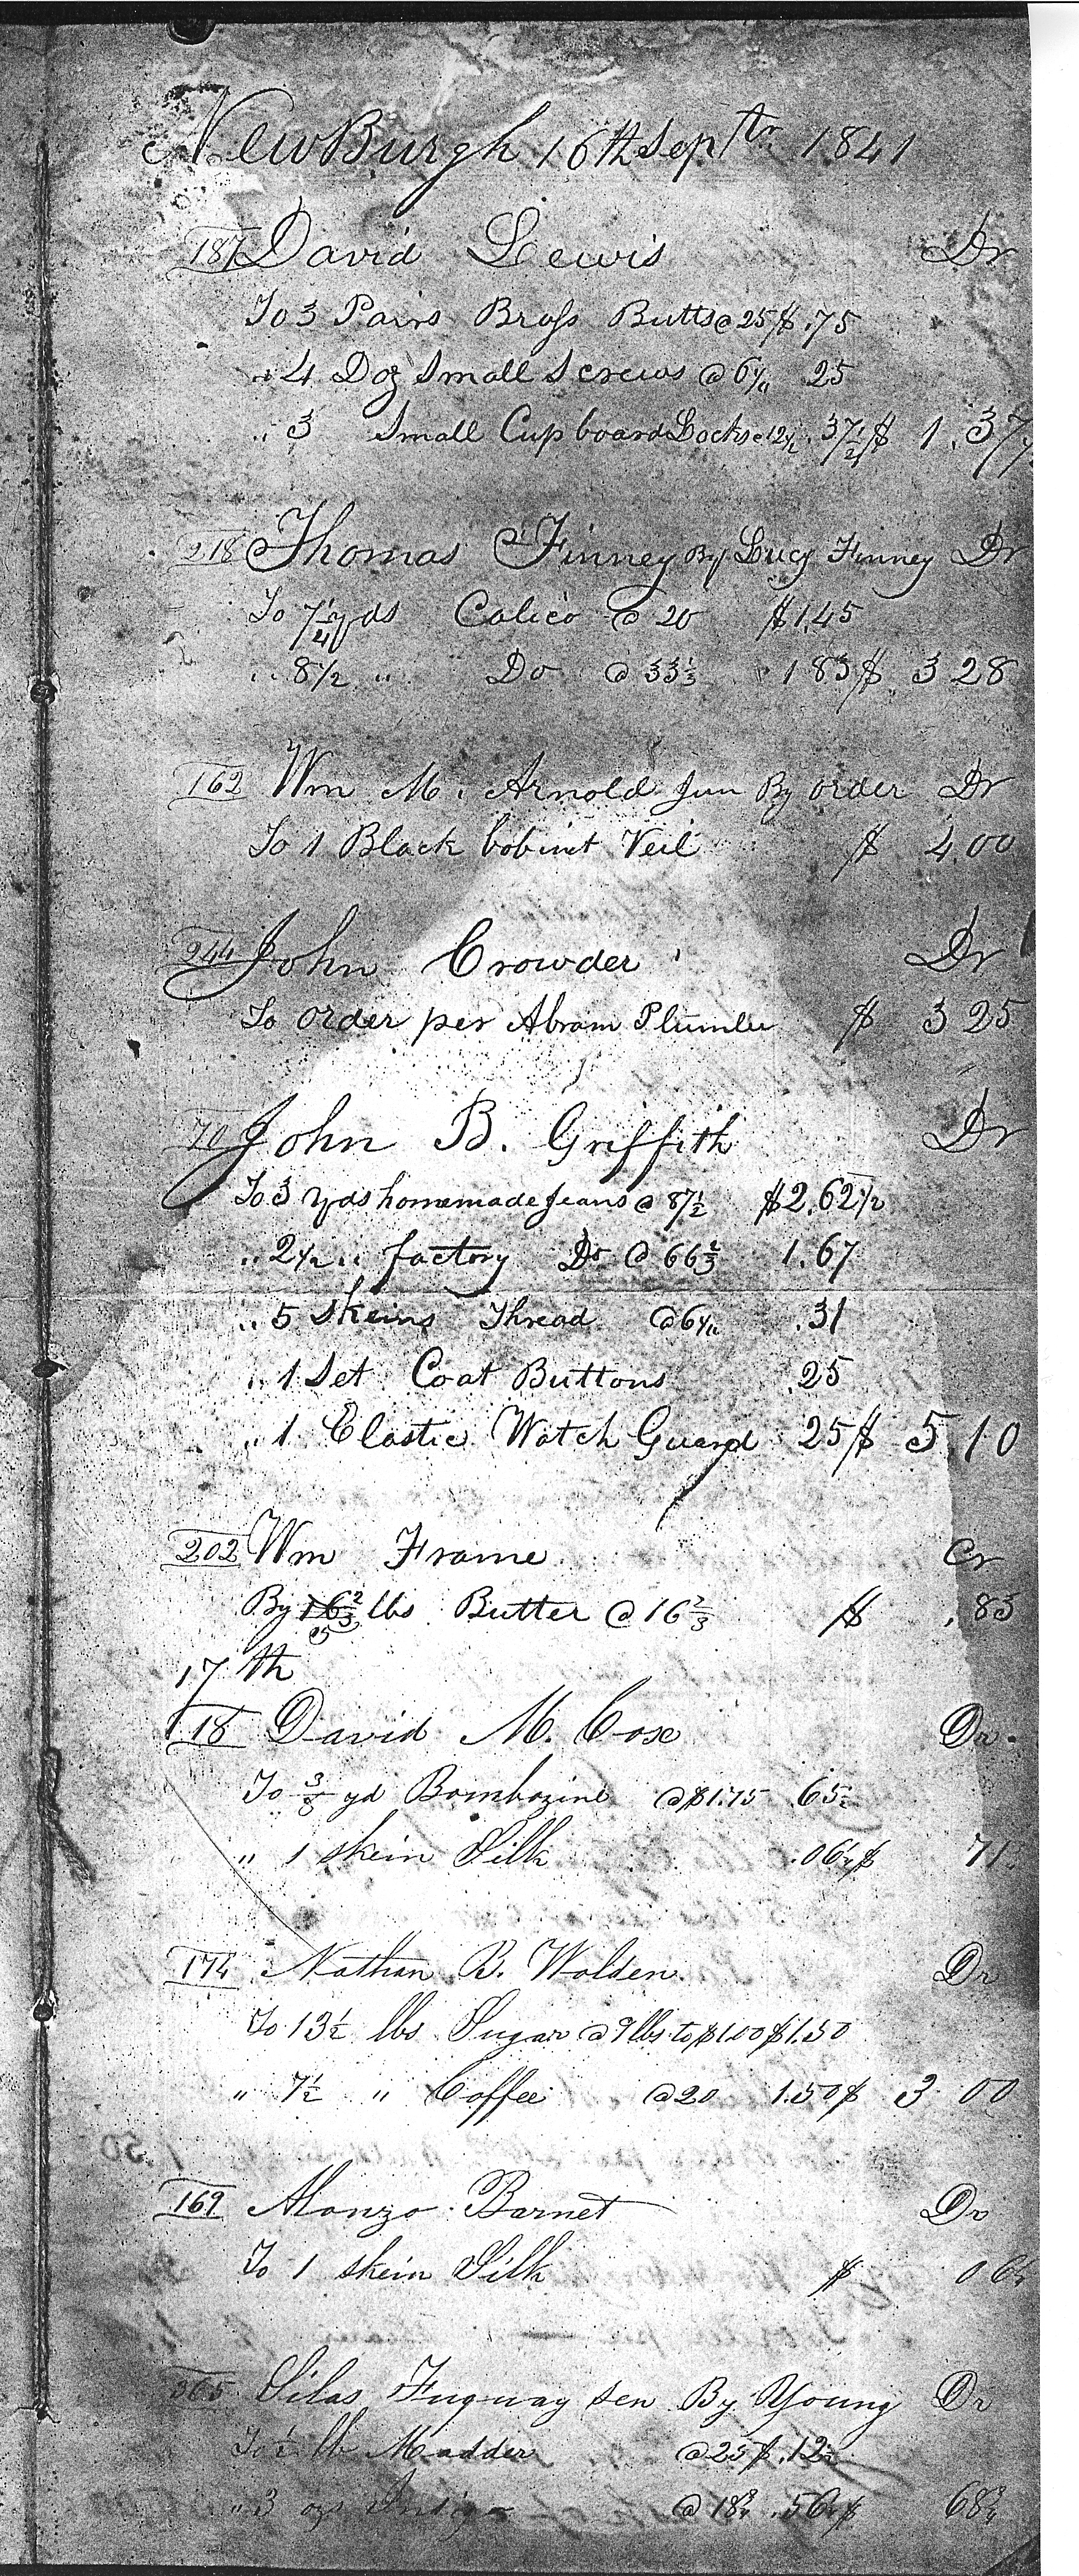 NewBurgh 16th Septr 1841
187 David Lewis Dr
To 3 Pairs Brass Butts @ 25 $ .75
" 4 Doz Small Screws @ 6¼ 25
" 3 Small Cupboard Locks @ 12½ .37½ $ 1.37½
218 Thomas Finney By Lucy Finney Dr
To 7¼ yds Calico @ 20 $1.45
" 8½ " Do @ 33⅓ 1 83 $ 3 28
162 Wm M. Arnold Jun By order Dr
To 1 Black bobinet Veil $ 4.00
244 John Crowder Dr
To order per Abram Plumlee $ 3 25
70 John B. Griffith Dr
To 3 yds homemade Jeans @ 87½ $2.62½
" 2½ " factory Do @ 66⅔ 1.67
" 5 Skeins Thread @ 6¼ .31
" 1 Set Coat Buttons .25
" 1 Elastic Watch Guard 25 $ 5.10
202 Wm Frame Cr
By 16⅔ 5 lbs Butter @ 16⅔ $ .83
17th
18 David M. Cox Dr.
To ⅜ yd Bombazine @ $1.75 .65½
" 1 skein Silk .06¼ $ 71
174 Nathan B. Walden Dr
To 13½ lbs Sugar @ 9 lbs to $1.00 $1.50
" 7½ " Coffee @ 20 1.50 $ 3 00
169 Alonzo Barnet Dr
To 1 skein Silk $ 0 6¼
365 Silas Fuquay Sen By Young Dr
To ½ lb Madder @ 25 $ .12½
" 3 ozs Indigo @ 18¾ .56¼ $ 68¾